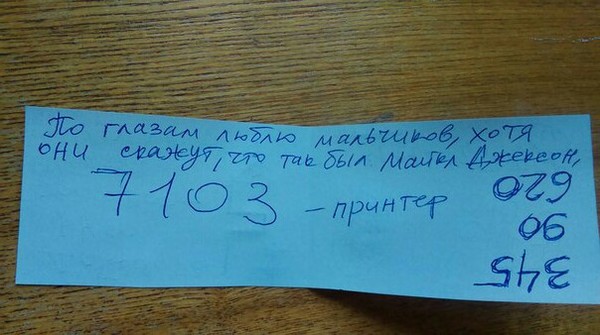 По глазам люблю мальчиков, хотя
они скажут, что так был Майкл Джексон,
7103 – принтер
620
90
345